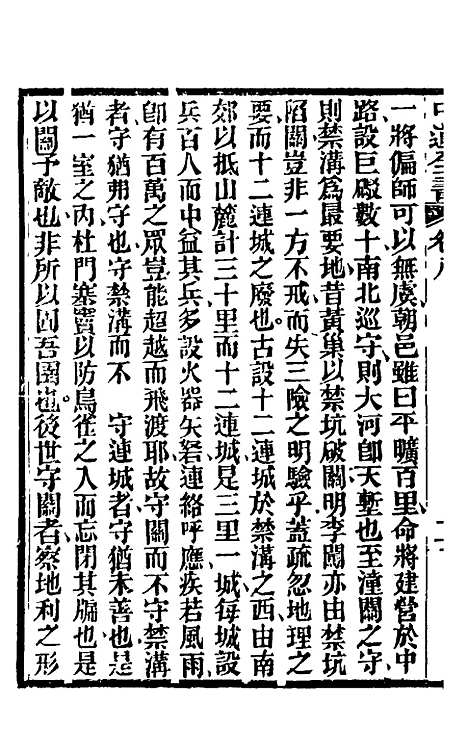 一將偏師可以無虞朝邑雖曰平曠百里命將建營於中
路設巨礮數十南北巡守則大河卽天塹也至潼關之守
則禁溝爲最要地昔黃巢以禁坑破關明李闖亦由禁坑
陷關豈非一方不戒而失三險之明驗乎蓋疏忽地理之
要而十二連城之廢也古設十二連城於禁溝之西由南
郊以抵山麓計三十里而十二連城是三里一城每城設
兵百人而中益其兵多設火器矢弩連絡呼應疾若風雨
卽有百萬之眾豈能超越而飛渡耶故守關而不守禁溝
者守猶弗守也守禁溝而不 守連城者守猶未善也是
猶一室之內杜門塞竇以防鳥雀之入而忘閉其牖也是
以關予敵也非所以固吾圉也後世守關者察地利之形